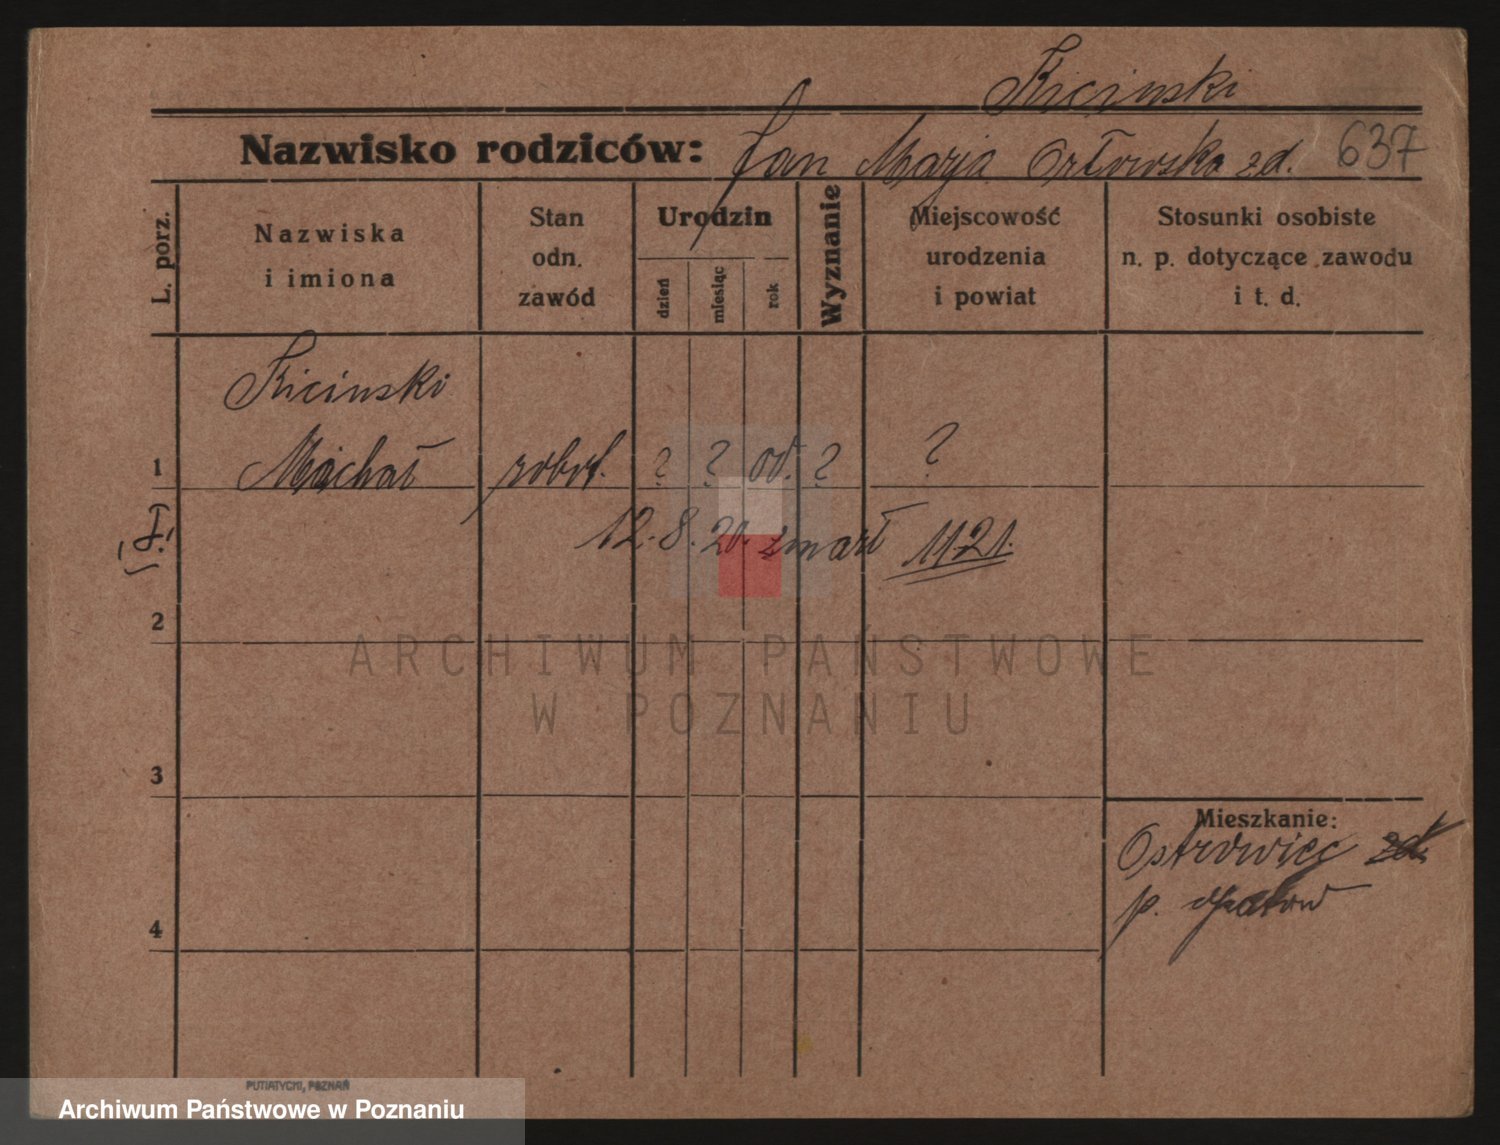 Kicinski
Nazwisko rodziców: Jan Marja Orłowska zd. 637
L. porz.
Nazwiska i imiona
Stan odn. zawód
Urodzin
dzień miesiąc rok
Wyznanie
Miejscowość urodzenia i powiat
Stosunki osobiste n. p. dotyczące zawodu i t. d.
Kicinski
1 Michał robot. ? ? od. ? ?
12. 8. 20. zmarł 1121.
2
ARCHIWUM PAŃSTWOWE
W POZNANIU
3
Mieszkanie:
Ostrowiec
p. Opatow
4
PUTIATYCKI, POZNAŃ
Archiwum Państwowe w Poznaniu